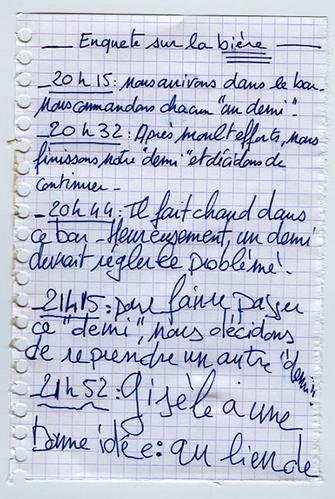 — Enquete sur la bière —
_ 20h15: Nous arrivons dans le bar.
Nous commandons chacun "un demi".
_ 20h32: Après moult efforts, nous
finissons notre "demi" et décidons de
continuer -
_ 20h44: Il fait chaud dans
ce bar - Heureusement, un demi
devrait régler le problème.
21h15: pour faire passer
ce "demi", nous décidons
de reprendre un autre "demi"
21h52: Gisèle a une
bonne idée: au lieu de